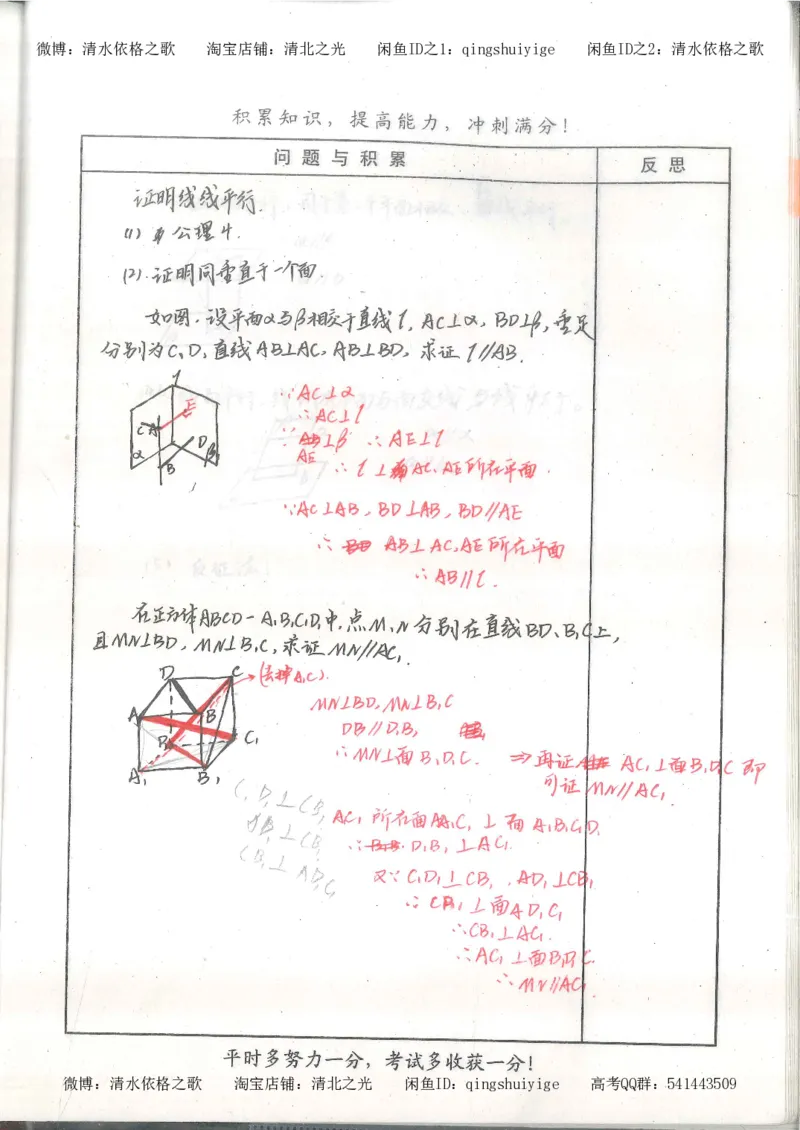 微博：清水依格之歌 淘宝店铺：清北之光 闲鱼ID之1：qingshuiyige 闲鱼ID之2：清水依格之歌
积累知识，提高能力，冲刺满分！
问题与积累 反思
证明线线平行.
(1) 公理4.
(2).证明同垂直于一个面.
如图.设平面α与β相交于直线l, AC⊥α, BD⊥β, 垂足
分别为C,D,直线AB⊥AC, AB⊥BD, 求证 l∥AB.
l
E
C A
D
α
B
β
∵AC⊥α
∴AC⊥l
∵AE⊥β ∴AE⊥l
∴ l⊥AC, AE所在平面.
∵AC⊥AB, BD⊥AB, BD∥AE
∴ AB⊥AC,AE所在平面
∴AB∥l.
在正方体ABCD-A₁B₁C₁D₁中,点M,N分别在直线BD、B₁C上,
且MN⊥BD, MN⊥B₁C,求证MN∥AC₁.
D C →(去掉A₁C).
A B
D₁ C₁
A₁ B₁
MN⊥BD, MN⊥B₁C
DB∥D₁B₁
∴MN⊥面B₁D₁C. ⇒再证 AC₁⊥面B₁D₁C 即
可证 MN∥AC₁.
C₁D₁⊥CB₁
CB₁⊥AD₁C₁
AC₁所在面AA₁C₁⊥面A₁B₁C₁D₁
∴D₁B₁⊥AC₁.
又∵C₁D₁⊥CB₁, AD₁⊥CB₁
∴CB₁⊥面AD₁C₁
∴CB₁⊥AC₁.
∴AC₁⊥面B₁D₁C.
∴MN∥AC₁.
平时多努力一分，考试多收获一分！
微博：清水依格之歌 淘宝店铺：清北之光 闲鱼ID：qingshuiyige 高考QQ群：541443509